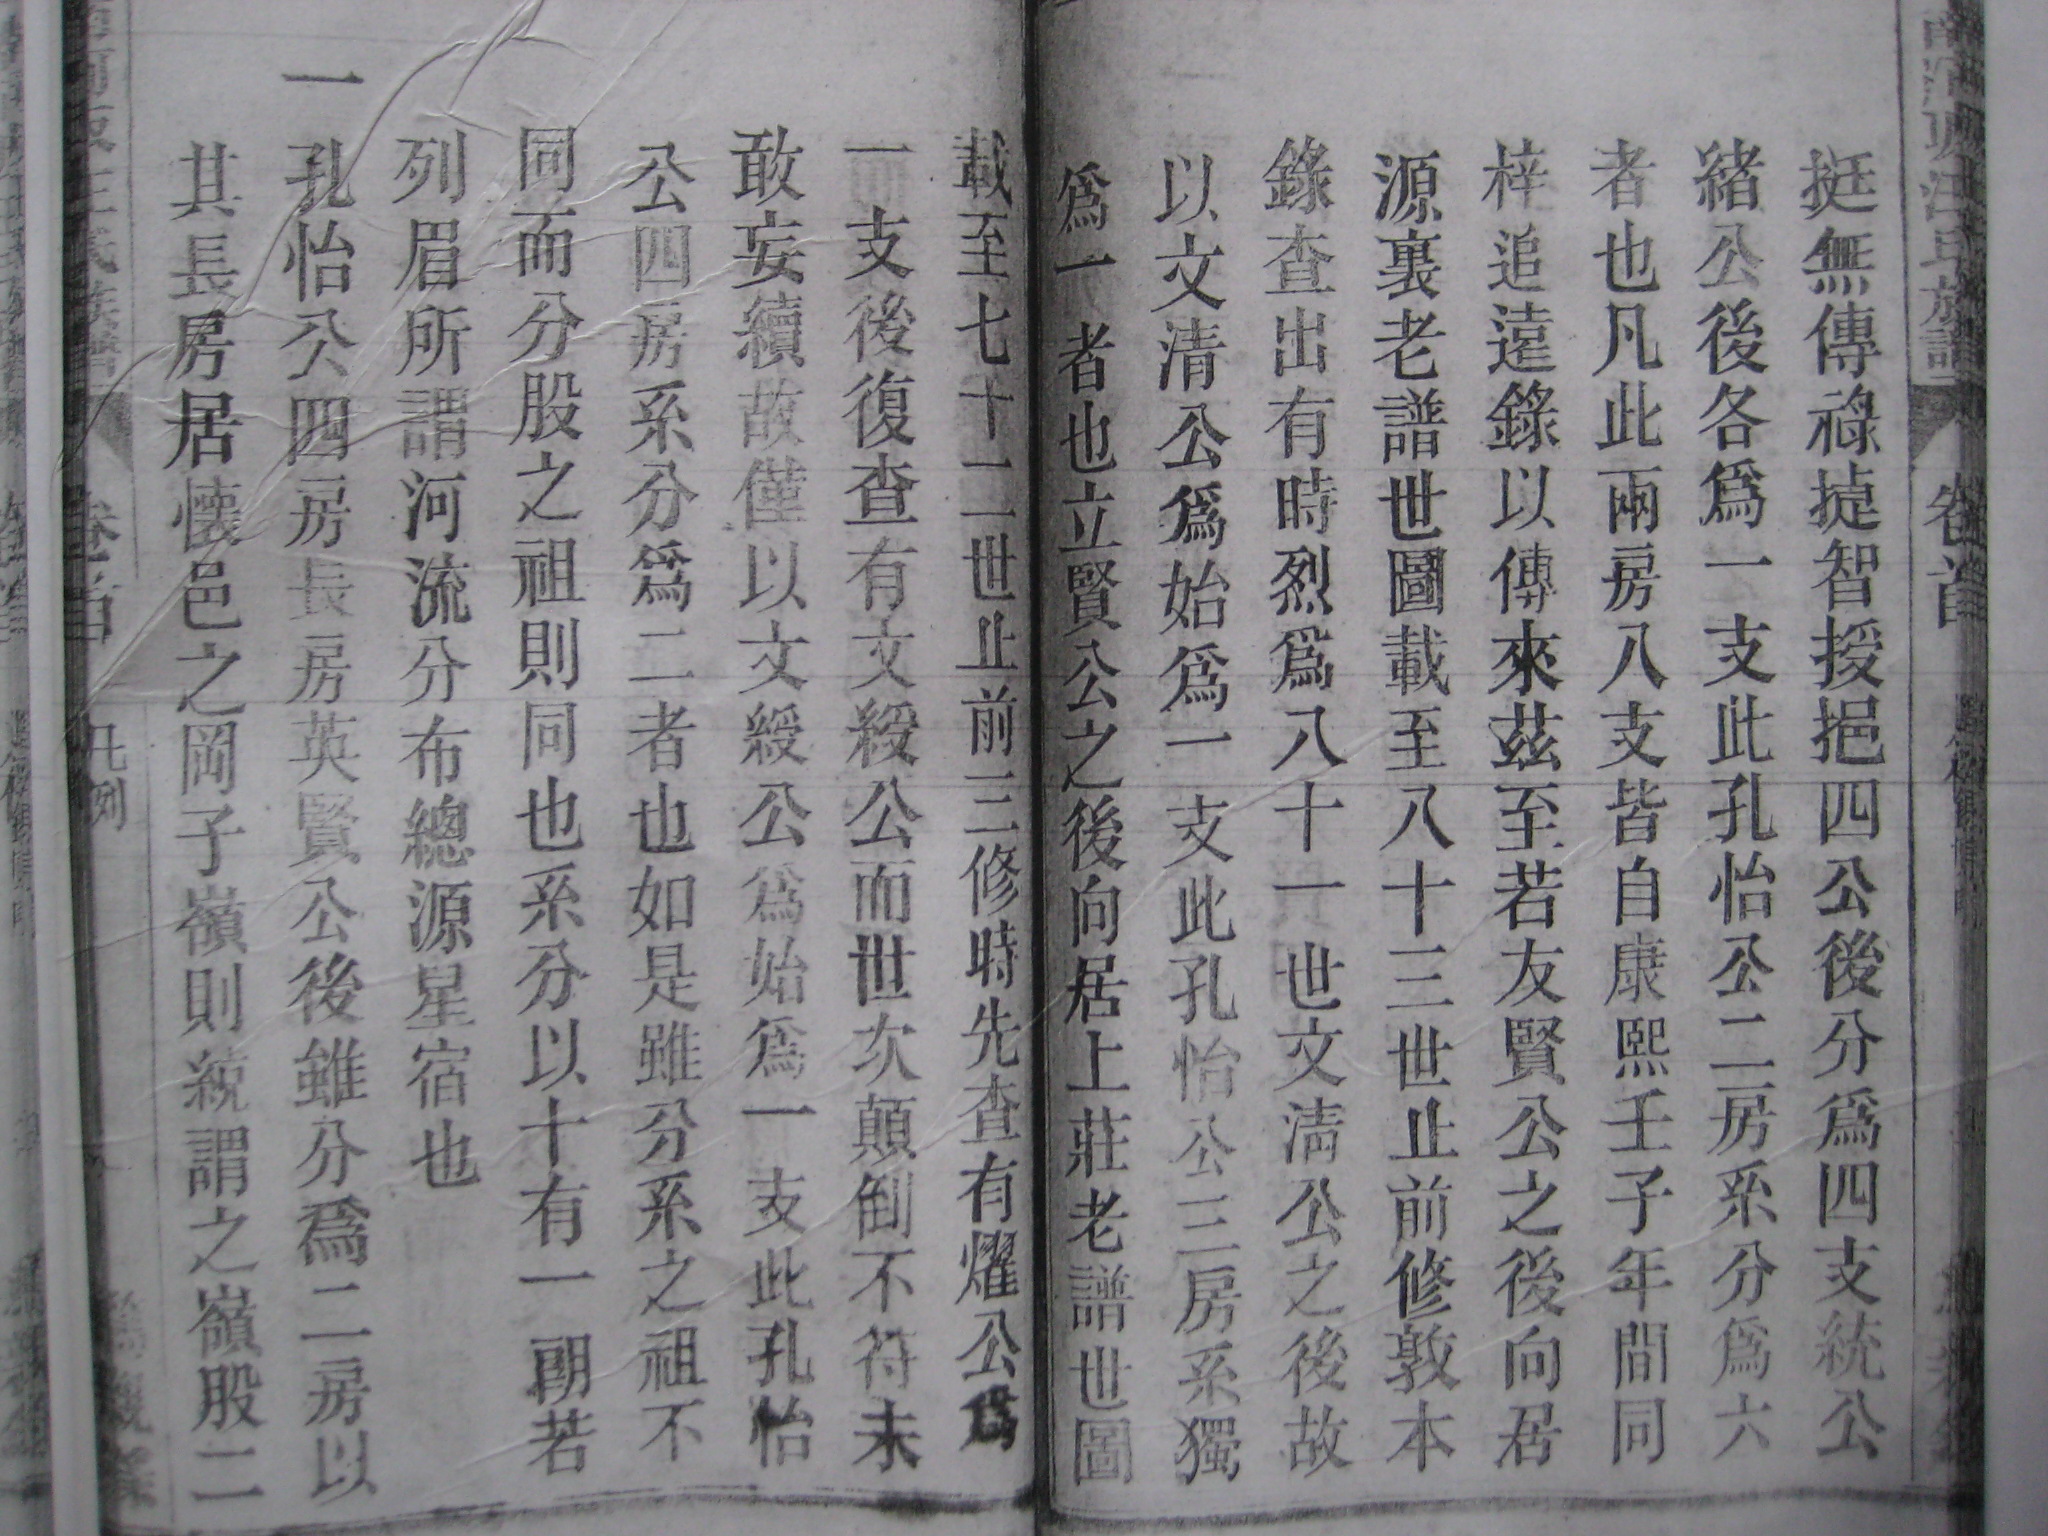 挺無傳祿㨗智授挹四公後分爲四支統公
緒公後各爲一支此孔怡公二房系分爲六
者也凡此兩房八支皆自康熙壬子年間同
梓追遠錄以傳來茲至若友賢公之後向居
源裏老譜世圖載至八十三世止前修敦本
錄查出有時烈爲八十一世文清公之後故
以文清公爲始爲一支此孔怡公三房系獨
爲一者也立賢公之後向居上莊老譜世圖
載至七十二世止前三修時先查有燿公爲
一支後復查有文綬公而世次顛倒不符未
敢妄續故僅以文綬公爲始爲一支此孔怡
公四房系分爲二者也如是雖分系之祖不
同而分股之祖則同也系分以十有一朗若
列眉所謂河流分布總源星宿也
一孔怡公四房長房英賢公後雖分爲二房以
其長房居懷邑之岡子嶺則統謂之嶺股二
卷首
凡例